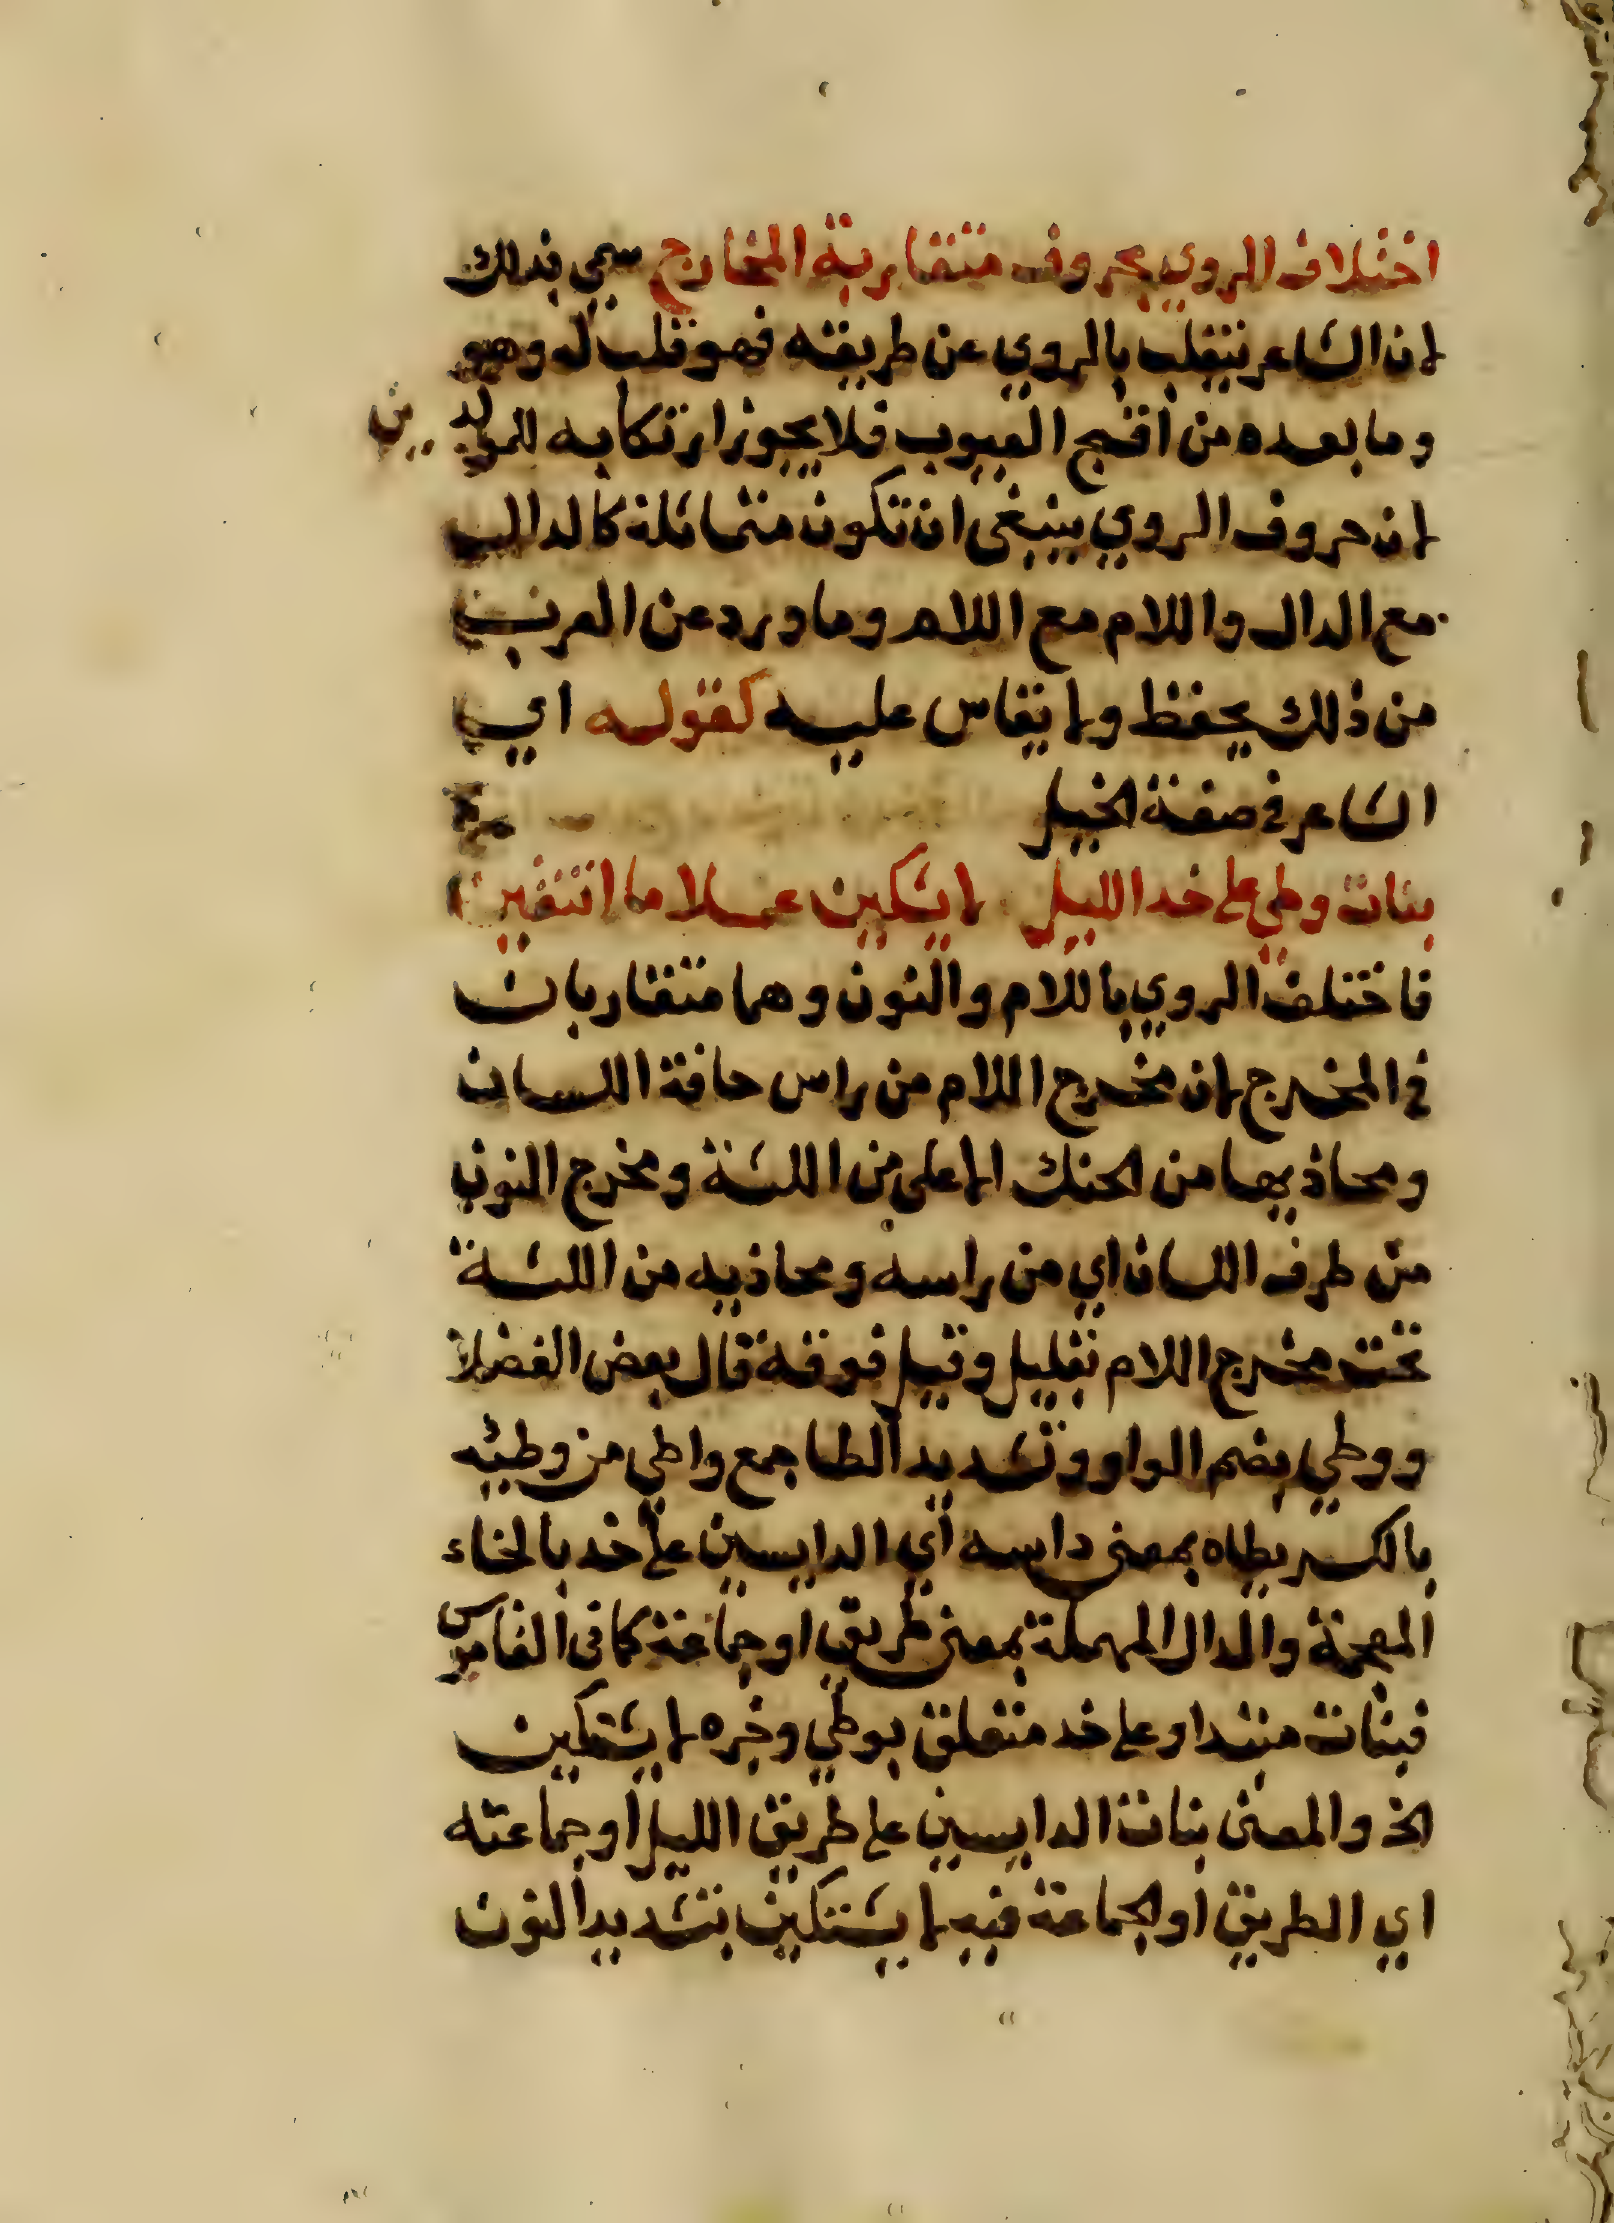 اختلاف الروي بحروف متقاربة المخارج سمي بذلك
لان الشاعر ينقلب بالروي عن طريقته فهو قلب له وهو
وما بعده من اقبح العيوب فلا يجوز ارتكابه للمولدين
لان حروف الروي ينبغى ان تكون متماثلة كالدال
مع الدال واللام مع اللام وما ورد عن العرب
من ذلك يحفظ ولا يقاس عليه كقوله اي
الشاعر في صفة الخيل
بنات وطي على خد الليل لا يشكين عملا ما انتقين
فاختلف الروي باللام والنون وهما متقاربان
في المخرج لان مخرج اللام من راس حافة اللسان
ومحاذيها من الحنك الاعلى من اللثة ومخرج النون
من طرف اللسان اي من راسه ومحاذيه من اللثة
تحت مخرج اللام بقليل وقيل فوقه قال بعض الفضلا
ووطي بضم الواو وتشديد الطا جمع واطي من وطيه
بالكسر يطاه بمعنى داسه اي الدايسين على خد بالخاء
المعجمة والدال المهملة بمعنى طريق او جماعة كما في القاموس
فبنات مبتدا وعلى خد متعلق بوطي وخبره لا يشتكين
الخ والمعنى بنات الدايسين على طريق الليل او جماعته
اي الطريق او الجماعة فيه لا يشتكين بتشديد النون